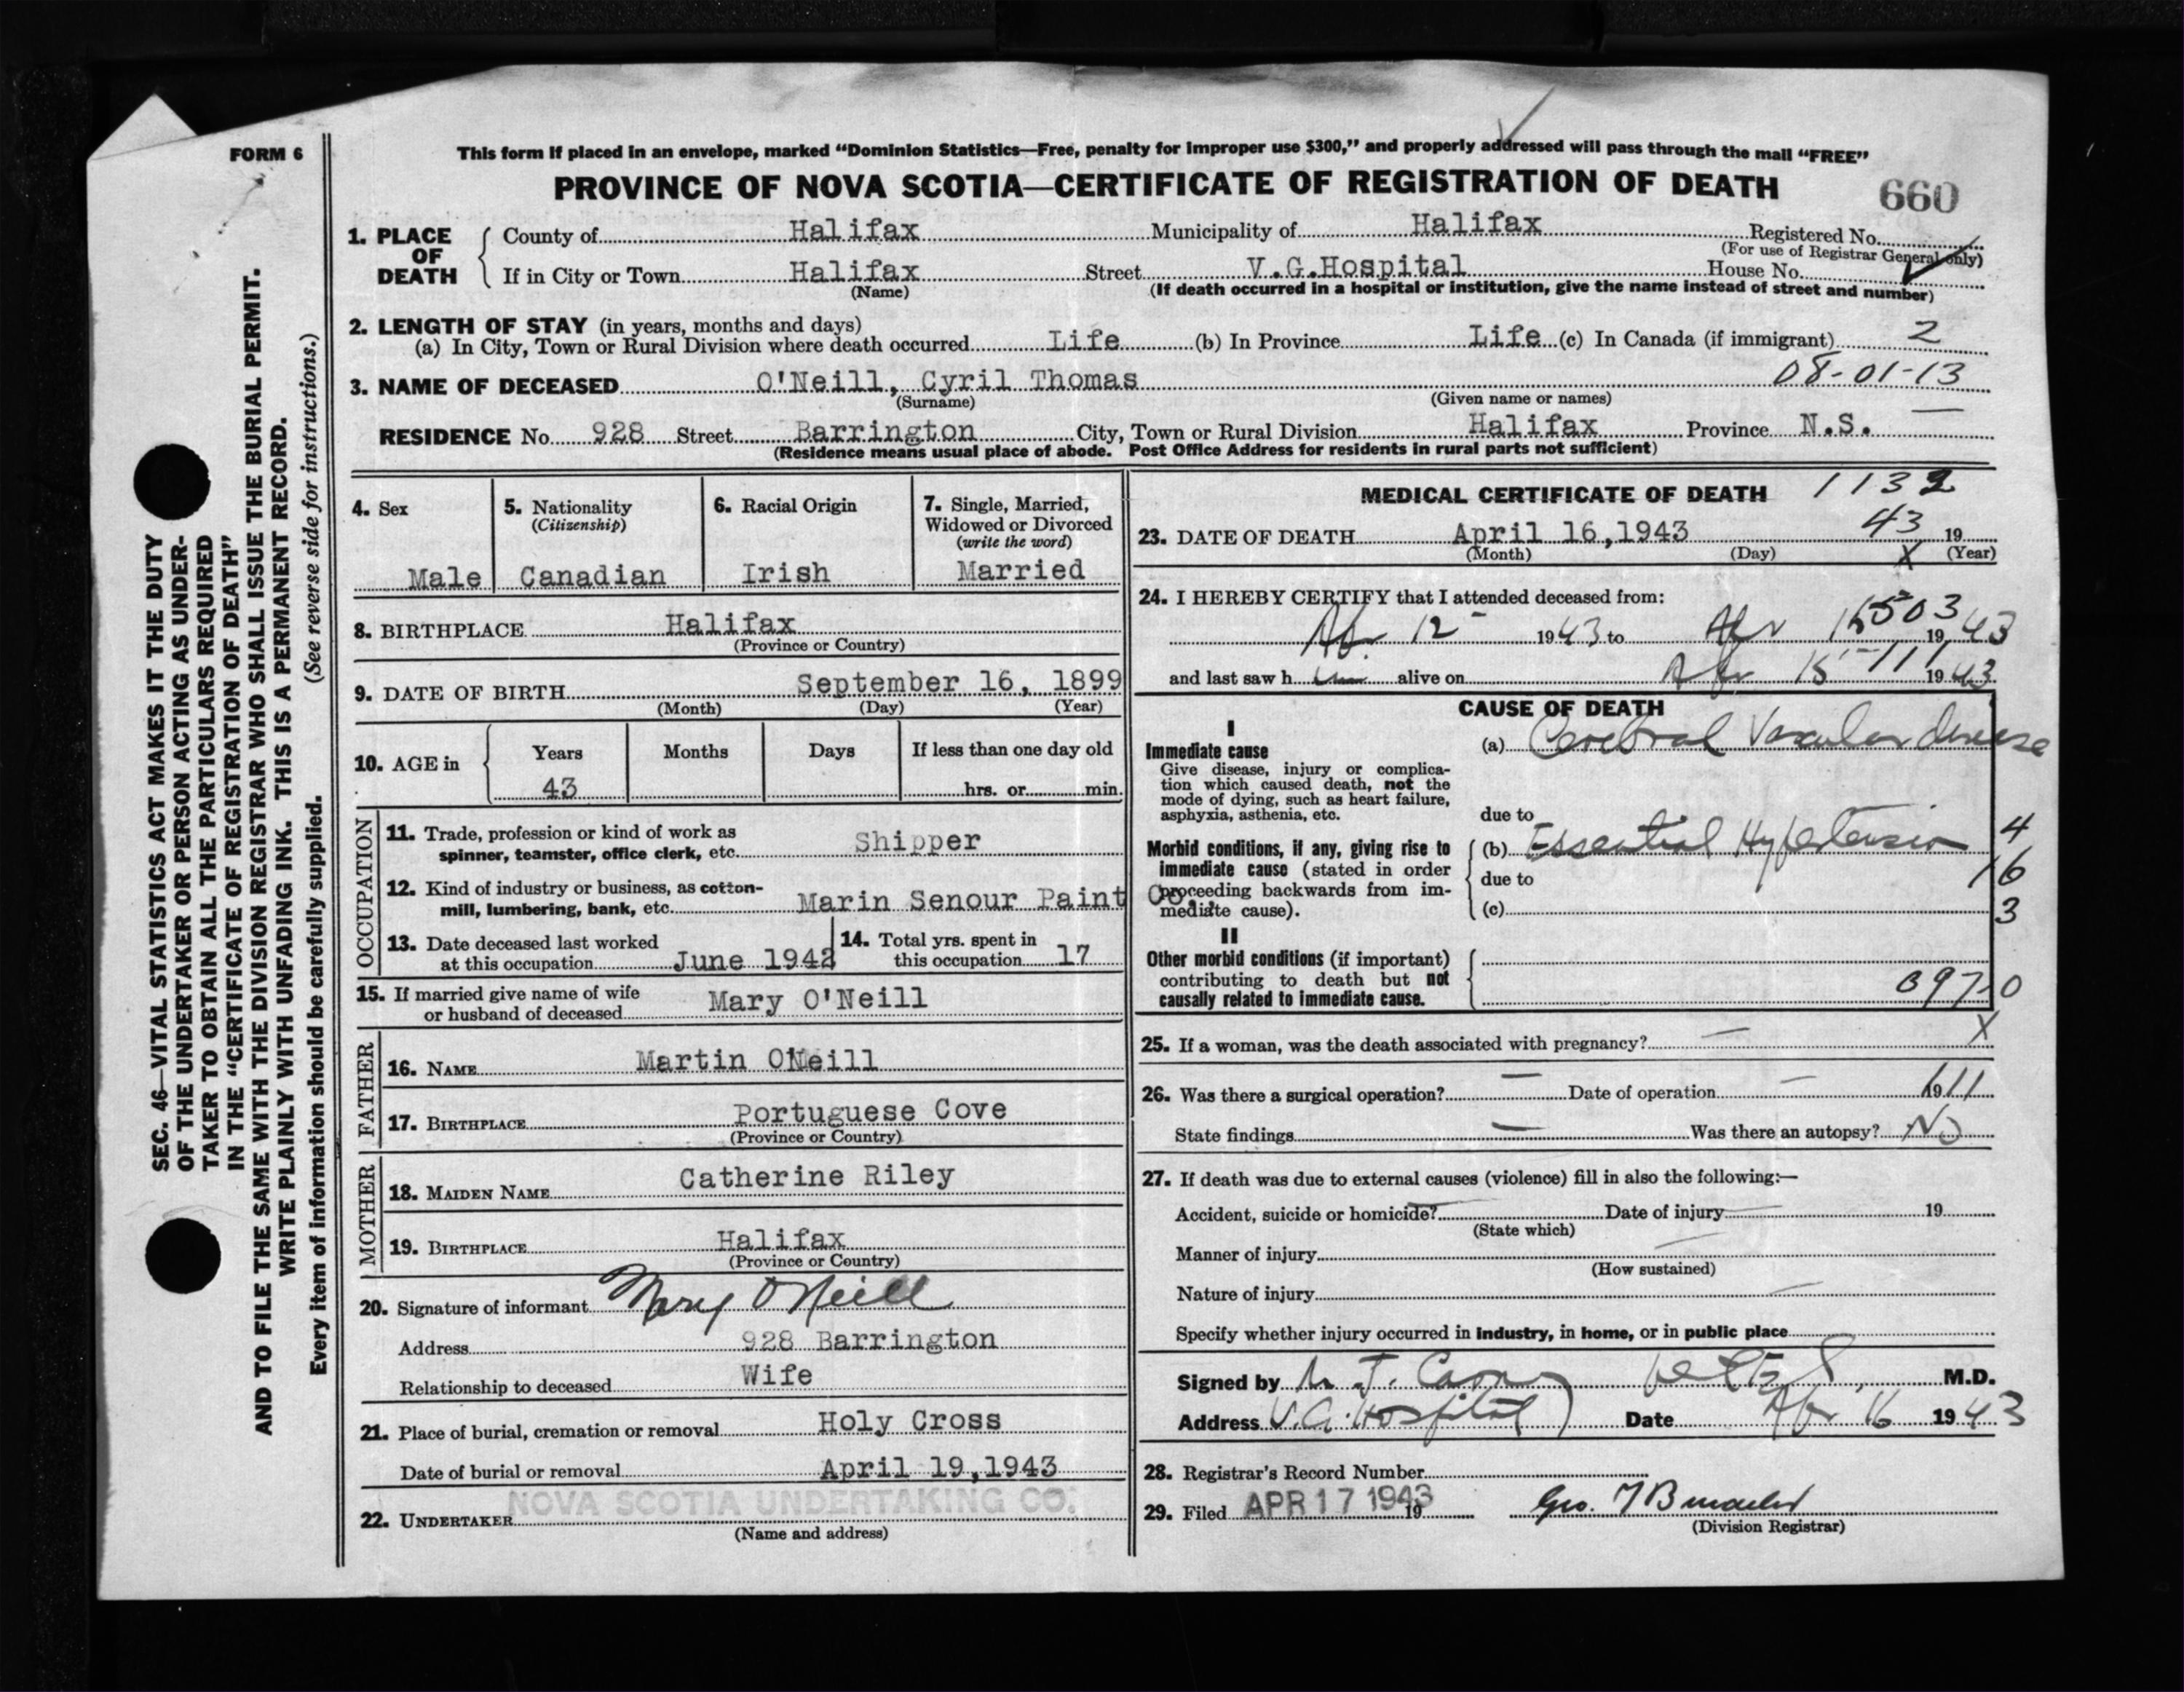 FORM 6
This form if placed in an envelope, marked “Dominion Statistics—Free, penalty for improper use $300,” and properly addressed will pass through the mail “FREE”
PROVINCE OF NOVA SCOTIA—CERTIFICATE OF REGISTRATION OF DEATH 660
1. PLACE OF DEATH County of Halifax Municipality of Halifax Registered No.
(For use of Registrar General only)
If in City or Town Halifax Street V.G.Hospital House No.
(Name) (If death occurred in a hospital or institution, give the name instead of street and number)
2. LENGTH OF STAY (in years, months and days)
(a) In City, Town or Rural Division where death occurred Life (b) In Province Life (c) In Canada (if immigrant) 2
08-01-13
3. NAME OF DECEASED O'Neill, Cyril Thomas
(Surname) (Given name or names)
RESIDENCE No. 928 Street Barrington City, Town or Rural Division Halifax Province N.S.
(Residence means usual place of abode. Post Office Address for residents in rural parts not sufficient)
4. Sex Male
5. Nationality (Citizenship) Canadian
6. Racial Origin Irish
7. Single, Married, Widowed or Divorced (write the word) Married
8. BIRTHPLACE Halifax
(Province or Country)
9. DATE OF BIRTH September 16, 1899
(Month) (Day) (Year)
10. AGE in Years Months Days If less than one day old
43 hrs. or min.
OCCUPATION
11. Trade, profession or kind of work as
spinner, teamster, office clerk, etc. Shipper
12. Kind of industry or business, as cotton-
mill, lumbering, bank, etc. Marin Senour Paint Co.
13. Date deceased last worked
at this occupation June 1942
14. Total yrs. spent in
this occupation 17
15. If married give name of wife
or husband of deceased Mary O'Neill
FATHER
16. NAME Martin O'Neill
17. BIRTHPLACE Portuguese Cove
(Province or Country)
MOTHER
18. MAIDEN NAME Catherine Riley
19. BIRTHPLACE Halifax
(Province or Country)
20. Signature of informant Mary O'Neill
Address 928 Barrington
Relationship to deceased Wife
21. Place of burial, cremation or removal Holy Cross
Date of burial or removal April 19,1943
22. UNDERTAKER NOVA SCOTIA UNDERTAKING CO.
(Name and address)
MEDICAL CERTIFICATE OF DEATH 1132
23. DATE OF DEATH April 16,1943 43 19
(Month) (Day) X (Year)
24. I HEREBY CERTIFY that I attended deceased from:
503
Ap. 12 1943 to Apr 15 1943
and last saw him alive on Apr 15 1943
111
CAUSE OF DEATH
I
Immediate cause
Give disease, injury or complica-
tion which caused death, not the
mode of dying, such as heart failure,
asphyxia, asthenia, etc.
(a) Cerebral Vascular disease
due to
Morbid conditions, if any, giving rise to
immediate cause (stated in order
proceeding backwards from im-
mediate cause).
(b) Essential Hypertension
due to
(c)
4
16
3
II
Other morbid conditions (if important)
contributing to death but not
causally related to immediate cause.
097-0
25. If a woman, was the death associated with pregnancy? — X
26. Was there a surgical operation? — Date of operation — 1911
State findings — Was there an autopsy? No
27. If death was due to external causes (violence) fill in also the following:—
Accident, suicide or homicide? Date of injury 19
(State which)
Manner of injury
(How sustained)
Nature of injury
Specify whether injury occurred in industry, in home, or in public place
Signed by M.D.
Address V.G. Hospital Date Apr 16 1943
28. Registrar's Record Number
29. Filed APR 17 1943 19
Geo.
(Division Registrar)
SEC. 46—VITAL STATISTICS ACT MAKES IT THE DUTY
OF THE UNDERTAKER OR PERSON ACTING AS UNDER-
TAKER TO OBTAIN ALL THE PARTICULARS REQUIRED
IN THE “CERTIFICATE OF REGISTRATION OF DEATH”
AND TO FILE THE SAME WITH THE DIVISION REGISTRAR WHO SHALL ISSUE THE BURIAL PERMIT.
WRITE PLAINLY WITH UNFADING INK. THIS IS A PERMANENT RECORD.
Every item of information should be carefully supplied. (See reverse side for instructions.)